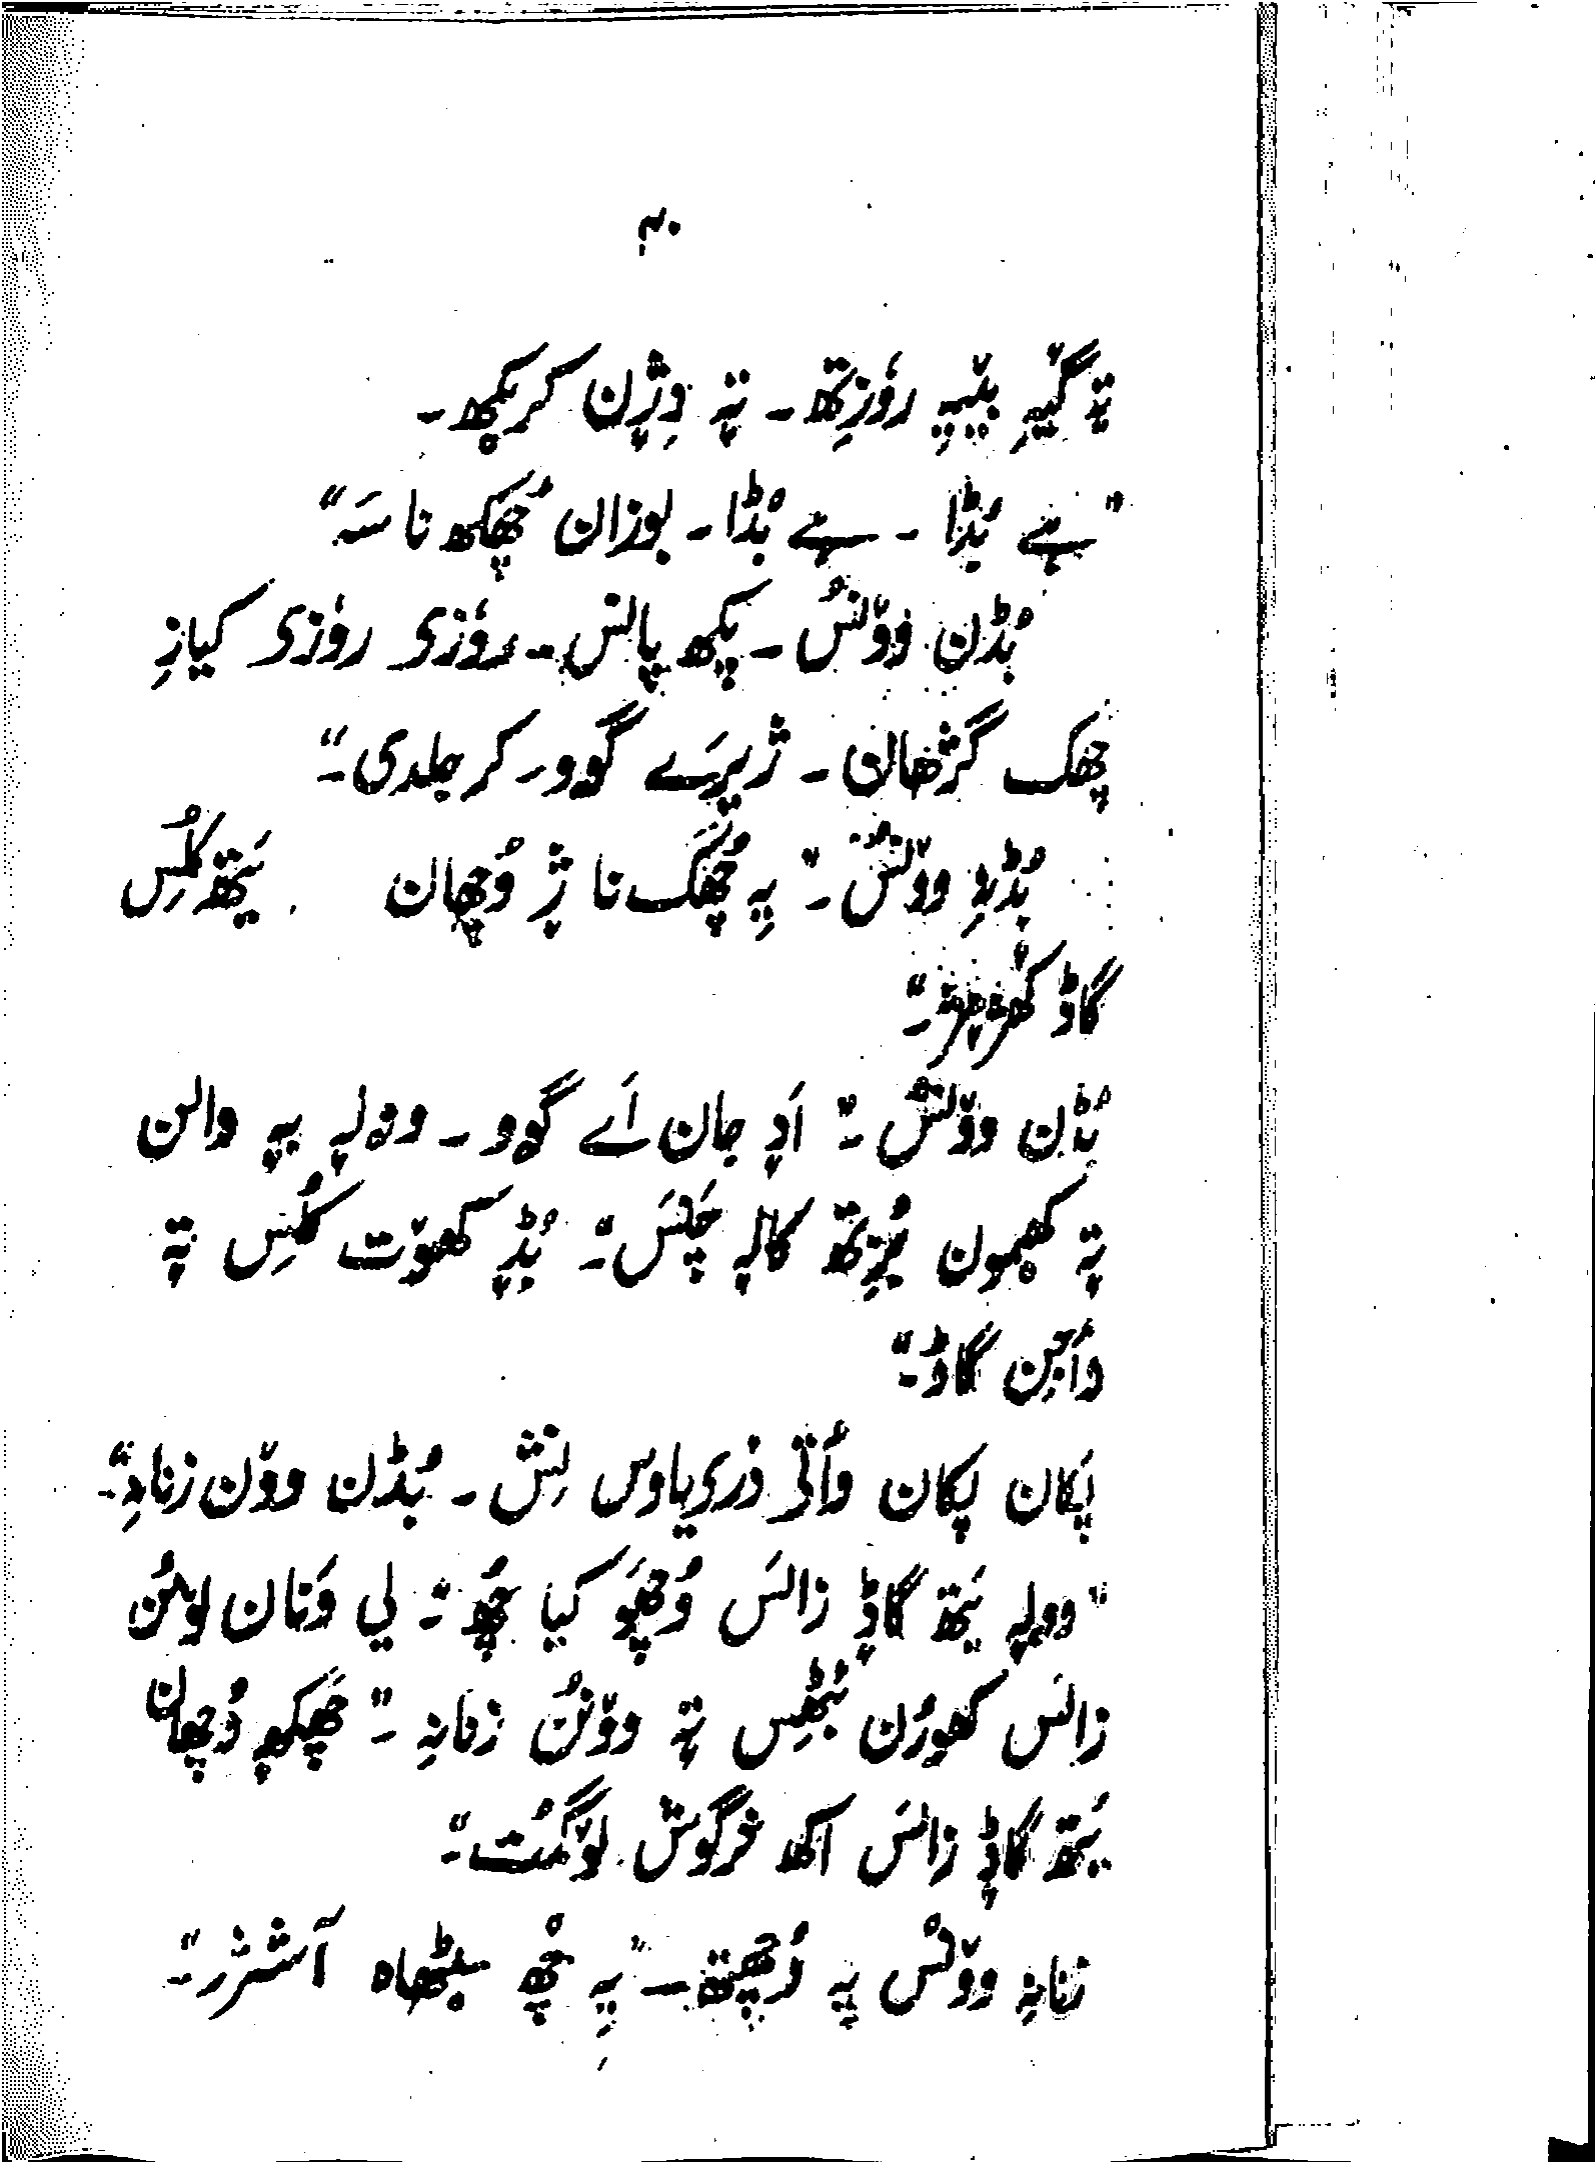 ۴۰
تہٕ گیہِ بیٚیہِ روٗزِتھ۔ تہٕ دِژٕن کریکھ۔
"ہے بُڈا ۔ ہے بُڈا۔ بوزان چُھکھ نا سَہ"
بُڈن ووٚنُس ۔ پکھ پانس۔ روٗزی روٗزی کیازِ
چھک گژھان ۔ ژیرَے گوو۔ کر جلدی۔"
بُڈِ ووٚنُس ۔" یہِ چُھک نا ژٕ وُچھان یَتھ کُلِس
گاڈ
بُڈن ووٚنُس ۔" اَدٕ جان اَے گوو ۔ وولہٕ یہٕ والن
تہٕ کھیمون بُزِتھ کالہٕ چَنَس"۔ بُڈٕ کھوٚت کُلِس تہٕ
وٲجِن گاڈ۔"
پَکان پکان وٲتی دٔری یاوس نِش ۔ بُڈن ووٚن زنانہِ"۔
"وولہٕ یَتھ گاڈٕ زالَس وُچھَو کیا چُھ"۔ لی وَنان لوٚمُن
زالَس کھورُن بُٹِھس تہٕ ووٚنُن زنانہِ ۔" چَھکھٕ وُچھان
یَتھ گاڈٕ زالَس اکھ خرگوش لوٚگمُت"۔
زنانہِ ووٚنُس یہٕ وُچِھتھ ۔ "یہِ چُھ سیٹھاہ آشژر"۔